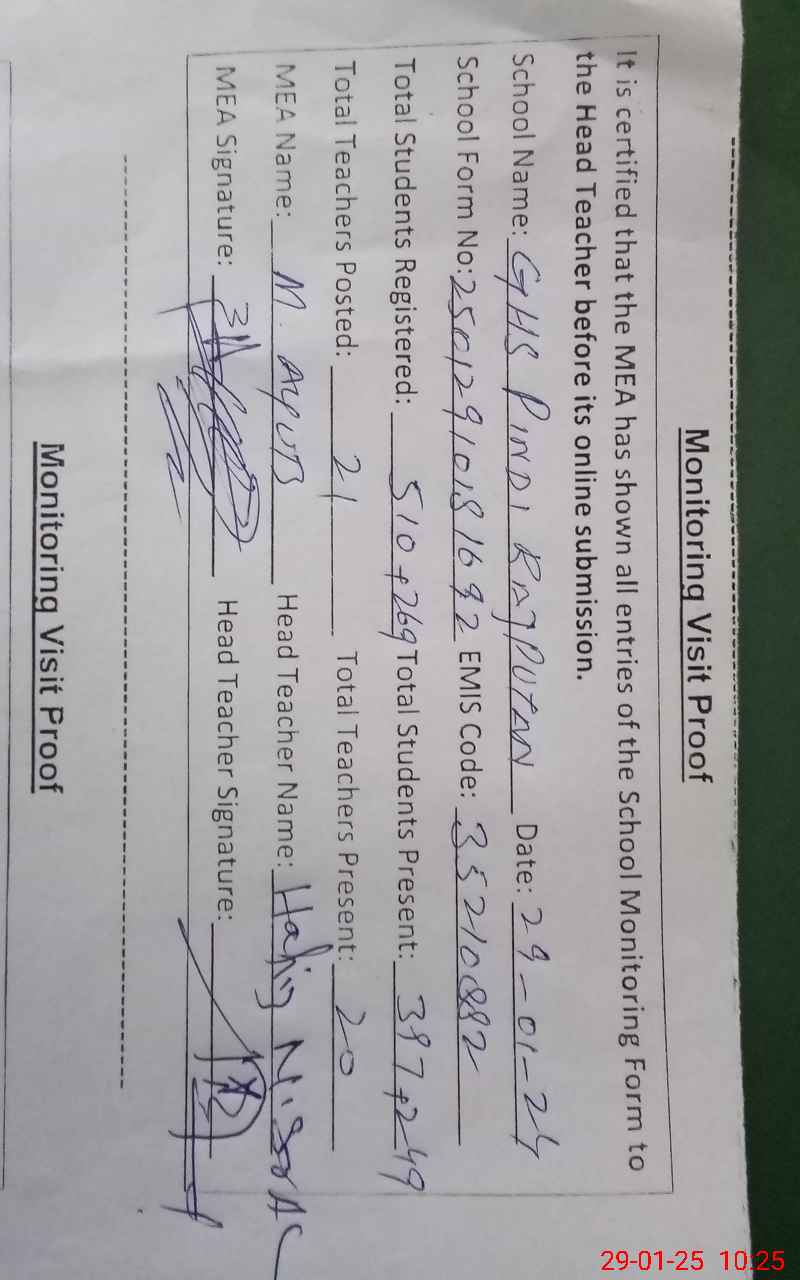 Monitoring Visit Proof
It is certified that the MEA has shown all entries of the School Monitoring Form to
the Head Teacher before its online submission.
School Name: GHS PINDI RAJPUTAN Date: 29-01-24
School Form No: EMIS Code: 35210882
Total Students Registered: 510+269 Total Students Present: 397+249
Total Teachers Posted: 21 Total Teachers Present: 20
MEA Name: M. AYUB Head Teacher Name:
MEA Signature: Head Teacher Signature:
Monitoring Visit Proof
29-01-25 10:25